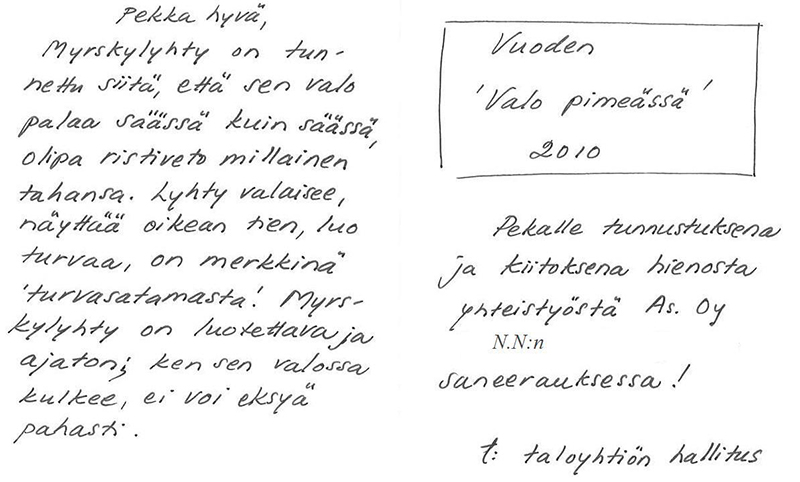 Pekka hyvä,
Myrskylyhty on tun-
nettu siitä, että sen valo
palaa säässä kuin säässä,
olipa ristiveto millainen
tahansa. Lyhty valaisee,
näyttää oikean tien, luo
turvaa, on merkkinä
'turvasatamasta'. Myrs-
kylyhty on luotettava ja
ajaton; ken sen valossa
kulkee, ei voi eksyä
pahasti.
Vuoden
'Valo pimeässä'
2010
Pekalle tunnustuksena
ja kiitoksena hienosta
yhteistyöstä As. Oy
N.N:n
saneerauksessa!
t: taloyhtiön hallitus